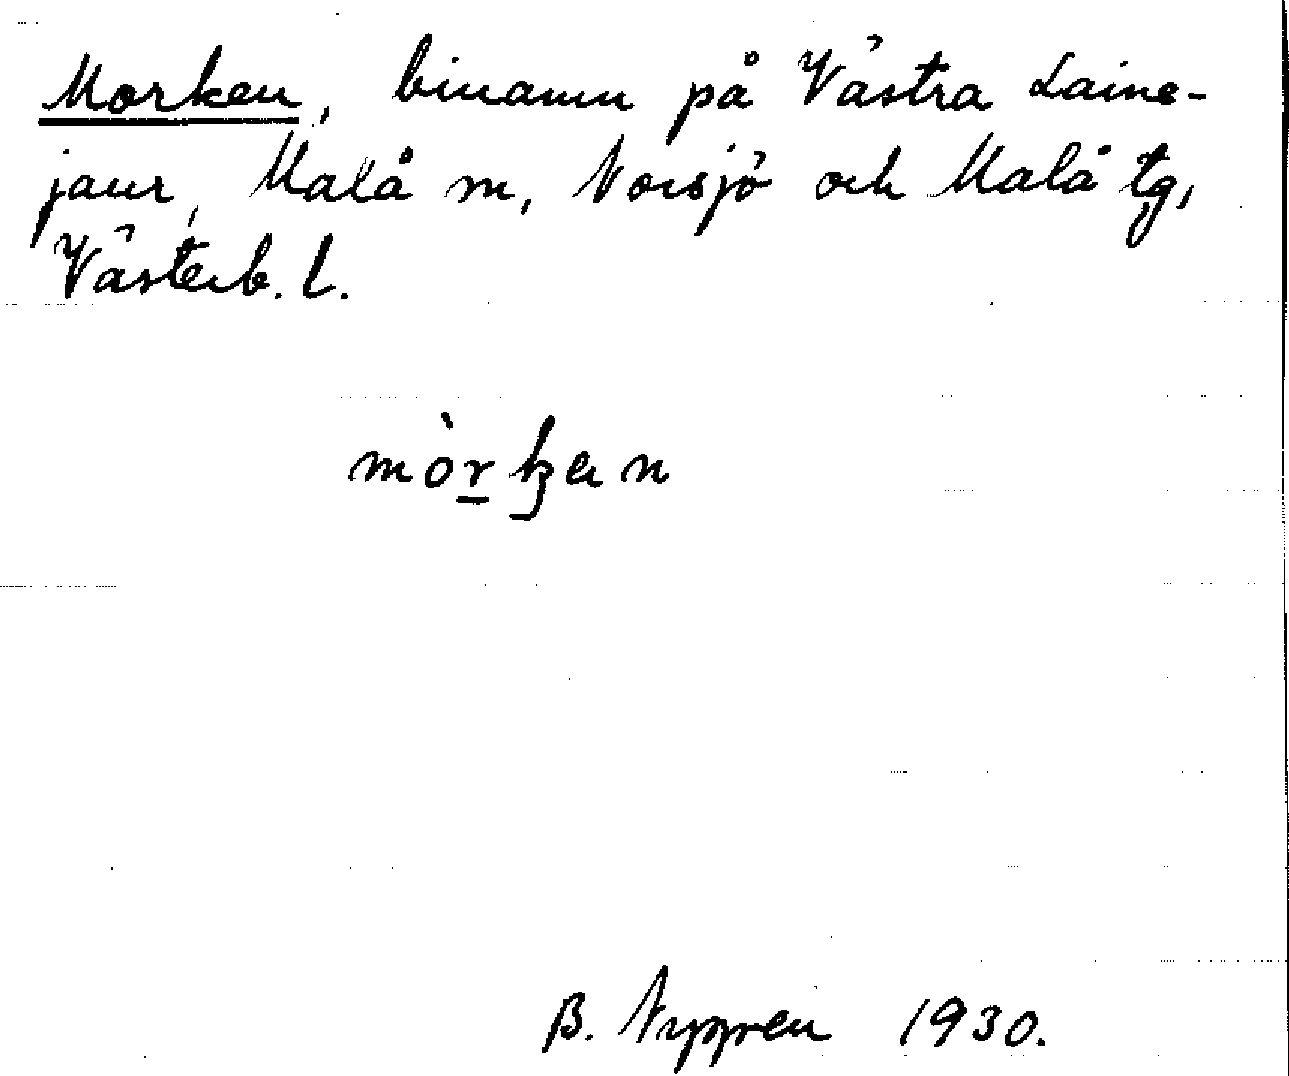 Morken, binamn på Västra Laine-
jaur, Malå sn, Norsjö och Malå tg,
Västerb. l.
mòrkan
B. Nygren 1930.